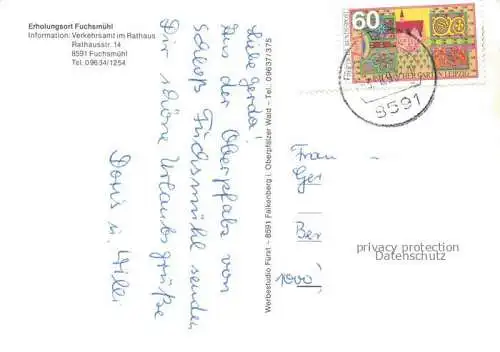 Erholungsort Fuchsmühl
Information: Verkehrsamt im Rathaus
Rathausstr. 14
8591 Fuchsmühl
Tel. 09634/1254
Liebe Gerda!
Aus der Oberpfalz von
Schloß Fuchsmühl senden
Dir schöne Urlaubsgrüße
Doris u. Willi
Werbestudio Fürst – 8591 Falkenberg i. Oberpfälzer Wald – Tel.: 09637/375
60
BOTANISCHER GARTEN LEIPZIG
8591
Frau
Ger
Ber
1000
privacy protection
Datenschutz